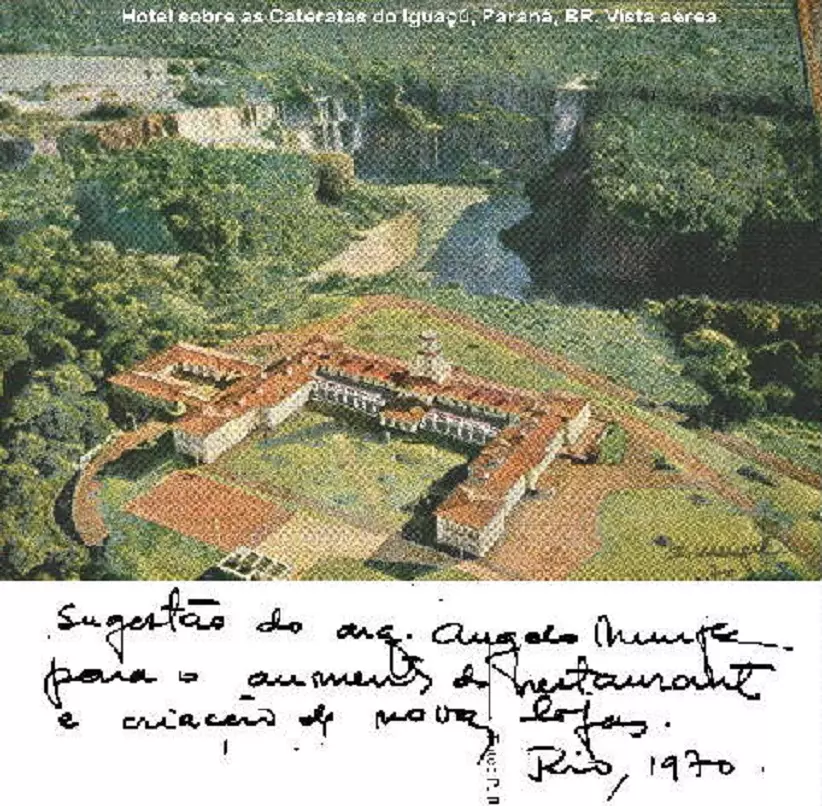 Hotel sobre as Cataratas do Iguaçú, Paraná, BR. Vista aérea.
Sugestão do arq. Angelo
para o aumento do restaurant
e criação de novas lojas.
Rio, 1970.